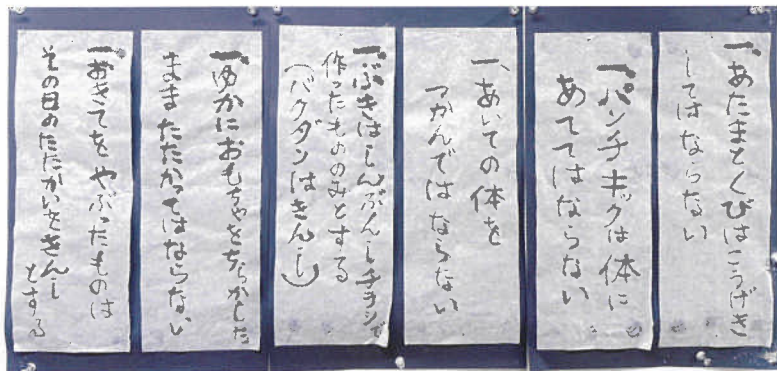 一、あたまとくびはこうげき
してはならない
一、パンチキックは体に
あててはならない
一、あいての体を
つかんではならない
一、ぶきはしんぶんしチラシで
作ったもののみとする
(バクダンはきんし)
一、ゆかにおもちゃをちらかした
ままたたかってはならない
一、おきてをやぶったものは
その日のたたかいをきんし
とする